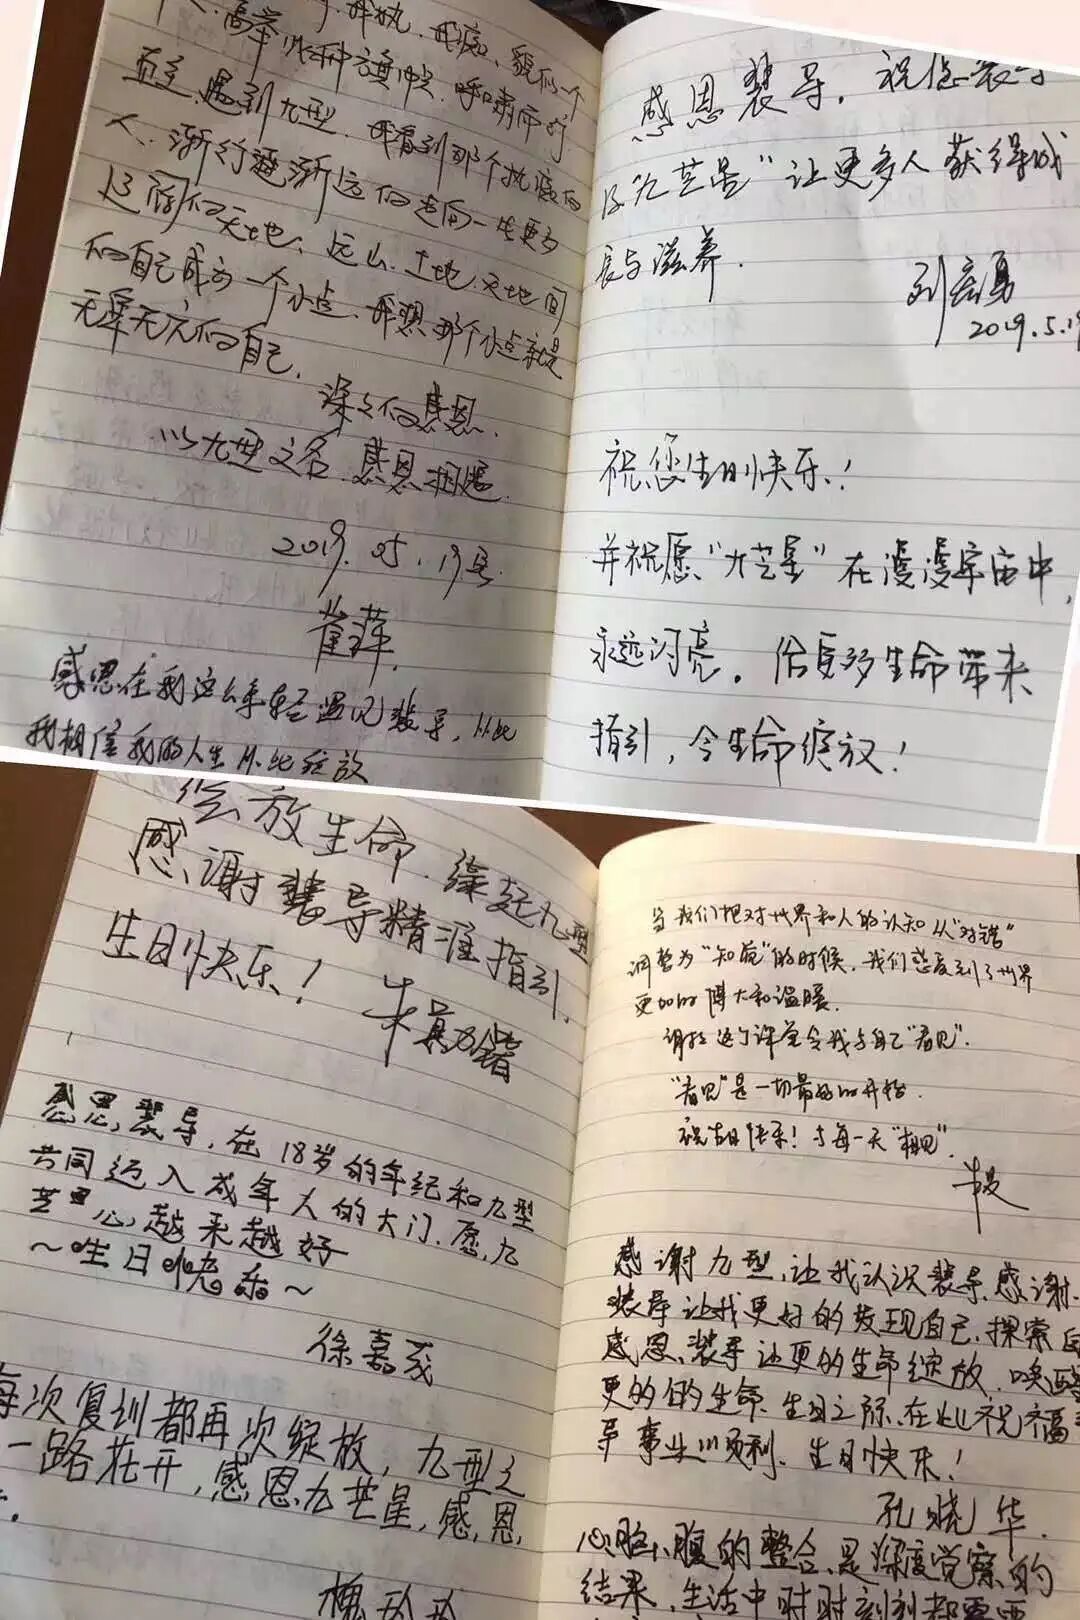 人、高举

直立、遇到九型、我看到那个执
人、渐行渐远的走向一生更
辽阔的天地、远山、土地、天地间
的自己成为一个小点、我想那个小点就是
无穹无穷的自己。
深深的感恩。
以九型之名、感恩相遇。
2019.05.19号
崔萍
感恩在我这么年轻遇见裴导，从此
我相信我的人生从此绽放
感恩裴导，祝您裴导
及“九芒星”让更多人获得成
长与滋养。
刘宏勇
2019.5.19
祝您生日快乐！
并祝愿“九芒星”在漫漫宇宙中，
永远闪亮。给更多生命带来
指引，令生命绽放！
绽放生命.缘起九型
感谢裴导精准指引.
生日快乐！
朱
感恩裴导，在18岁的年纪和九型
共同迈入成年人的大门.愿九
芒星心越来越好
~生日快乐~
徐嘉茂
每次复训都再次绽放，九型之
一路花开，感恩九芒星，感恩
槐
当我们把对世界和人的认知从“对错”
调整为“知觉”的时候，我们感受到了世界
更加的博大和温暖.
谢谢这个课堂令我与自己“看见”.
“看见”是一切最好的开始.
祝生日快乐！与每一天“相见”.
感谢九型，让我认识裴导.感谢
裴导让我更好的发现自己.探索自
感恩裴导让更的生命绽放.唤醒
更的的生命.生日之际.在此祝福
导事业顺利.生日快乐！
孔晓华.
心脑腹的整合，是深度觉察的
结果，生活中时时刻刻都要